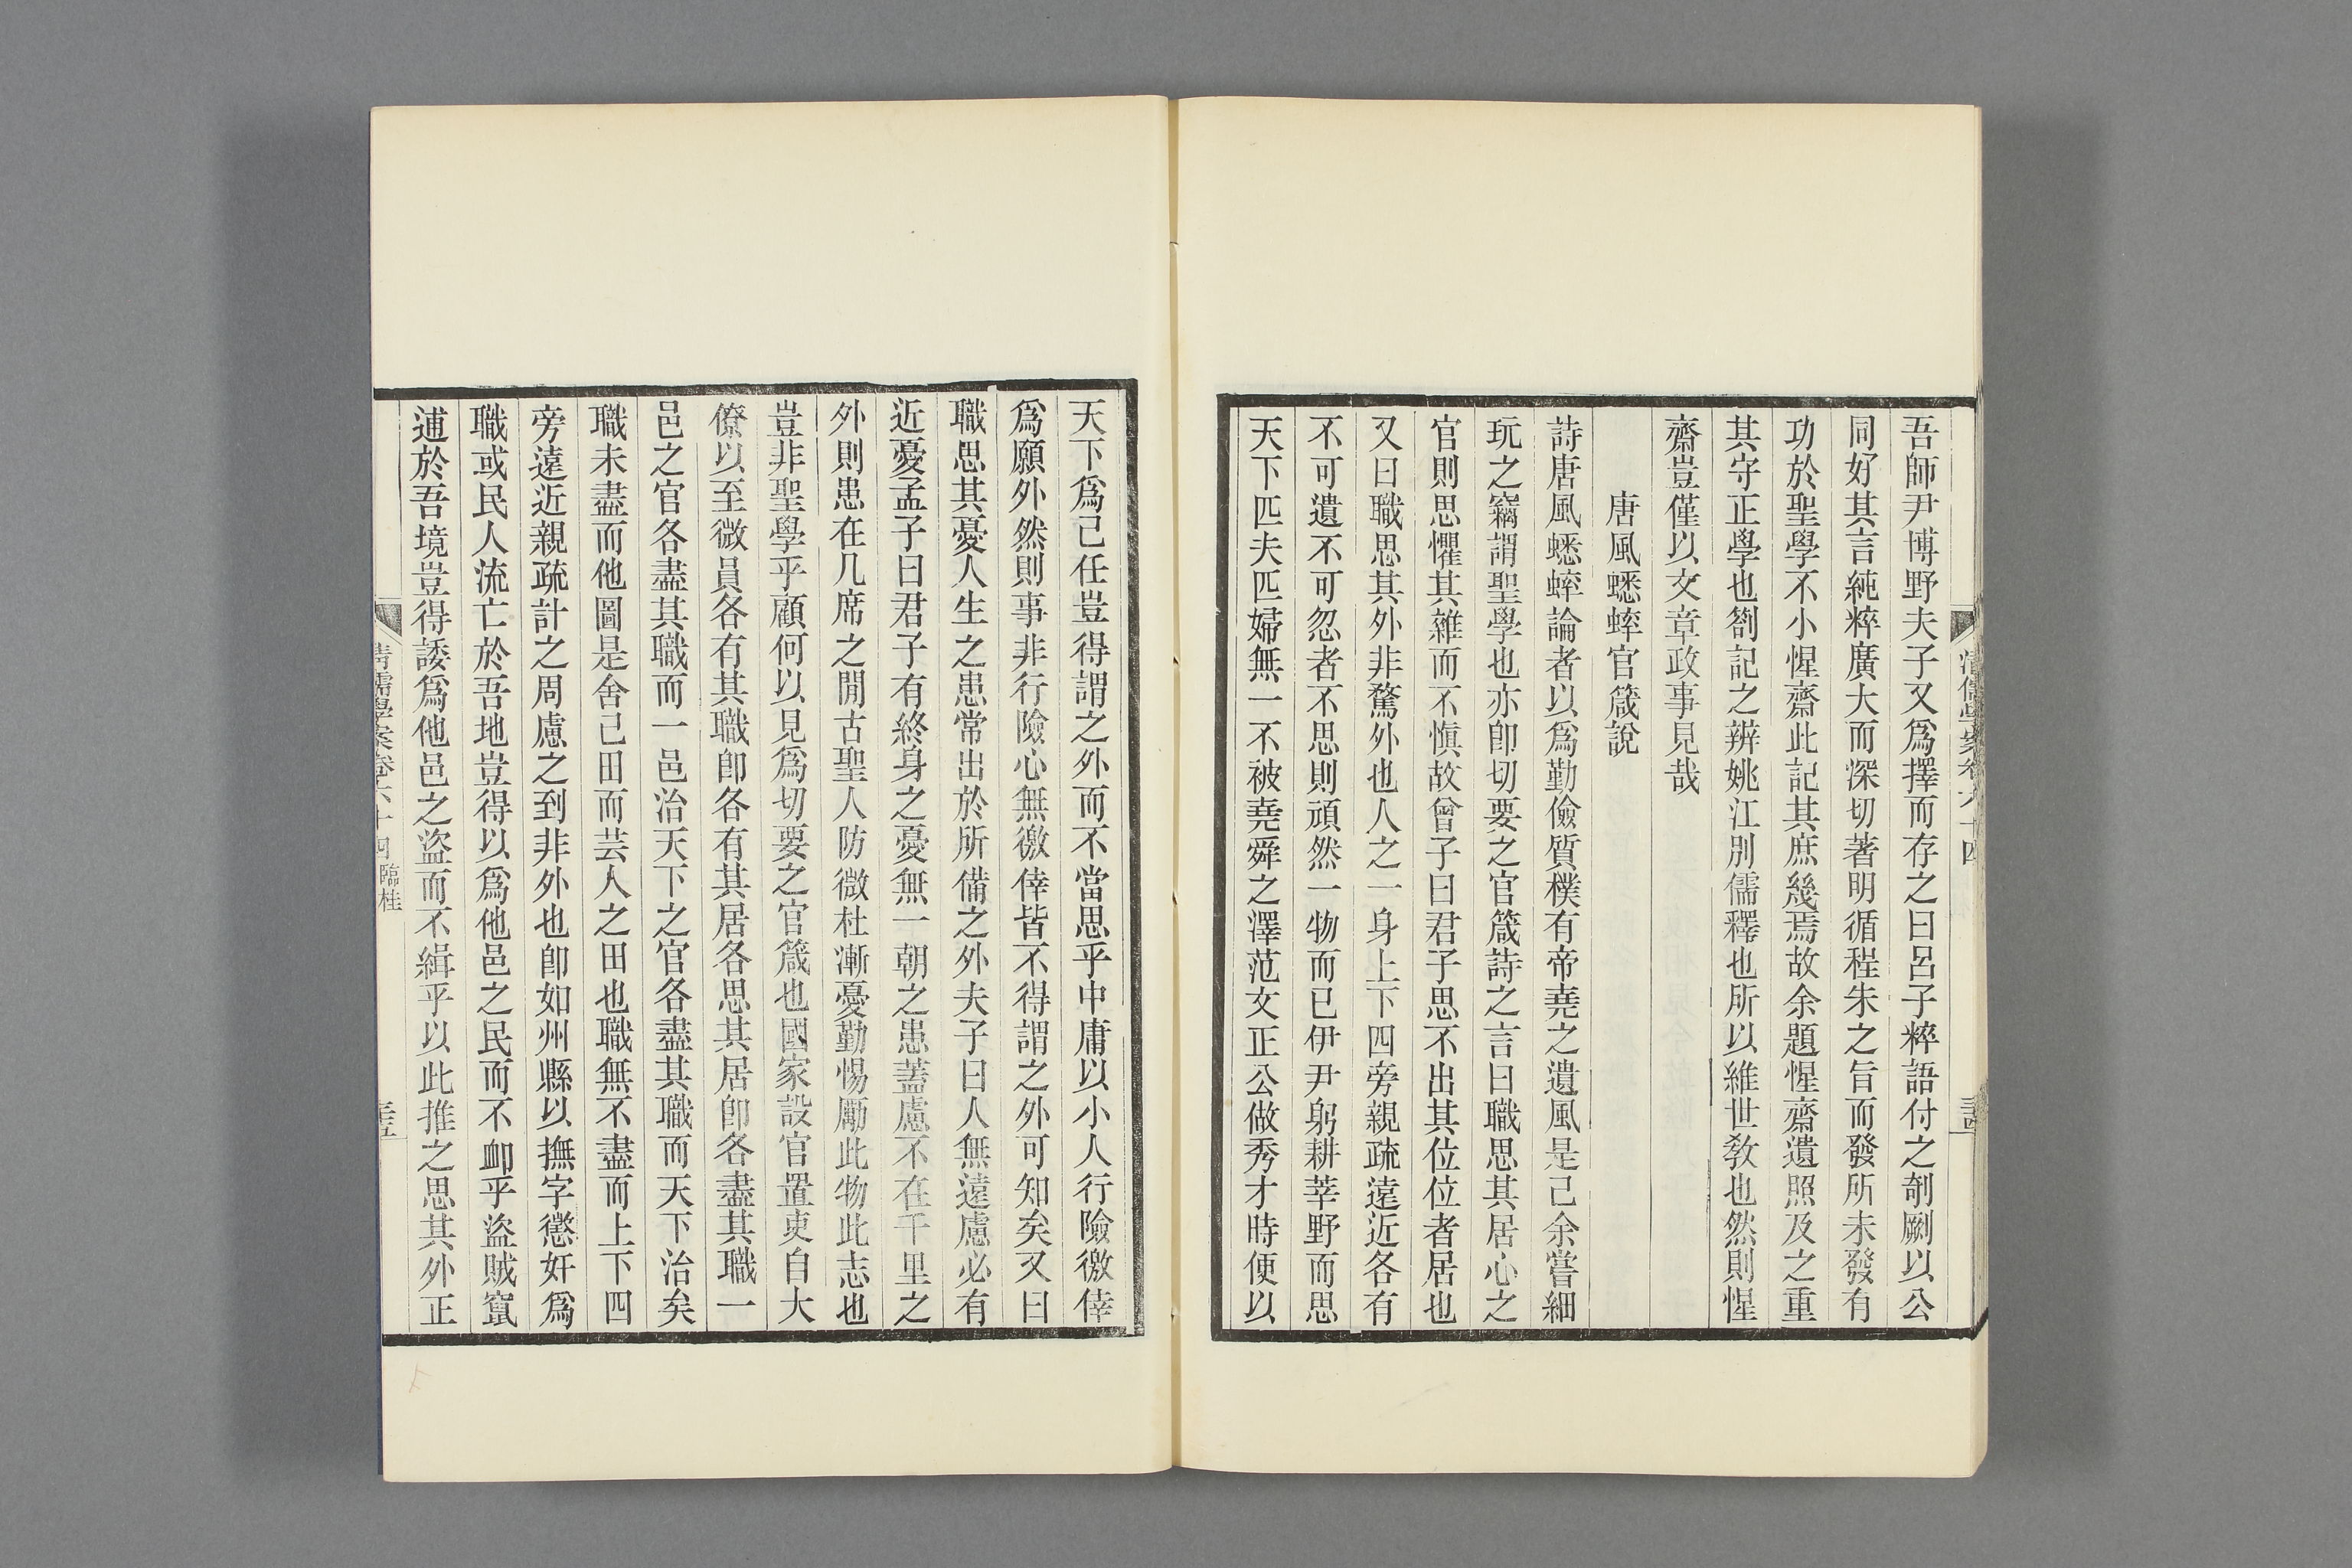 吾師尹博野夫子又爲擇而存之曰呂子粹語付之剞劂以公
同好其言純粹廣大而深切著明循程朱之旨而發所未發有
功於聖學不小惺齋此記其庶幾焉故余題惺齋遺照及之重
其守正學也劄記之辨姚江別儒釋也所以維世敎也然則惺
齋豈僅以文章政事見哉
唐風蟋蟀官箴說
詩唐風蟋蟀論者以爲勤儉質樸有帝堯之遺風是已余嘗細
玩之竊謂聖學也亦卽切要之官箴詩之言曰職思其居心之
官則思懼其雜而不愼故曾子曰君子思不出其位位者居也
又曰職思其外非騖外也人之一身上下四旁親疏遠近各有
不可遺不可忽者不思則頑然一物而已伊尹躬耕莘野而思
天下匹夫匹婦無一不被堯舜之澤范文正公做秀才時便以
天下爲己任豈得謂之外而不當思乎中庸以小人行險徼倖
爲願外然則事非行險心無徼倖皆不得謂之外可知矣又曰
職思其憂人生之患常出於所備之外夫子曰人無遠慮必有
近憂孟子曰君子有終身之憂無一朝之患蓋慮不在千里之
外則患在几席之閒古聖人防微杜漸憂勤惕勵此物此志也
豈非聖學乎顧何以見爲切要之官箴也國家設官置吏自大
僚以至微員各有其職卽各有其居各思其居卽各盡其職一
邑之官各盡其職而一邑治天下之官各盡其職而天下治矣
職未盡而他圖是舍己田而芸人之田也職無不盡而上下四
旁遠近親疏計之周慮之到非外也卽如州縣以撫字懲奸爲
職或民人流亡於吾地豈得以爲他邑之民而不卹乎盜賊竄
逋於吾境豈得諉爲他邑之盜而不緝乎以此推之思其外正
清儒學案卷六十四 臨桂